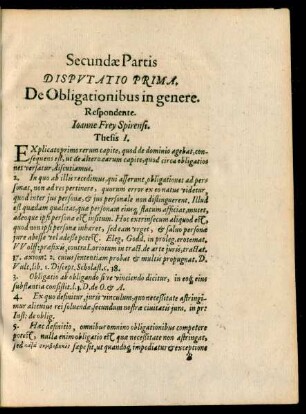 Secundæ Partis
DISPVTATIO PRIMA.
De Obligationibus in genere.
Respondente.
Ioanne Frey Spirensi.
Thesis I.
EXplicato primo rerum capite, quod de dominio agebat, con-
sequens est, ut de altero earum capite, quod circa obligatio
nes versatur, discutiamus.
2. In quo ab illis recedimus, qui asserunt, obligationes ad per
sonas, non ad res pertinere, quorum error ex eo natus videtur,
quod inter jus personæ, & jus personale non distinguerent. Illud
est quædam qualitas, quæ personam ejusq́ statum afficiat, mutet,
adeoque ipsi personæ est insitum. Hoc extrinsecum aliquod est,
quod non ipsi personæ inhæret, sed eam urget, & salvo personæ
jure abesse vel adesse potest. Eleg. Godd. in proleg. erotemat.
VVolffi præfixis, contra Larioum in tract. de arte juris, tract. at.
17. axiom. 2. cuius sententiam probat & multis propugnat, D.
Vult. lib. 1. Discept. Scholast. c. 18.
Obligatio ab obligando sive vinciendo dicitur, in eoq́; ejus
substantia consistit. l. 3. D. de O. & A.
4. Ex quo definitur, juris vinculum, quo necessitate astringi-
mur alicuius rei solvendæ, secundum nostræ civitatis jura, in pr.
Inst: de oblig.
5. Hæc definitio, omnibus omnino obligationibus competere
potest, nulla enim obligatio est, quæ necessitate non astringat,
sed sæpe sit, ut quandoq́; impediatur & exceptione